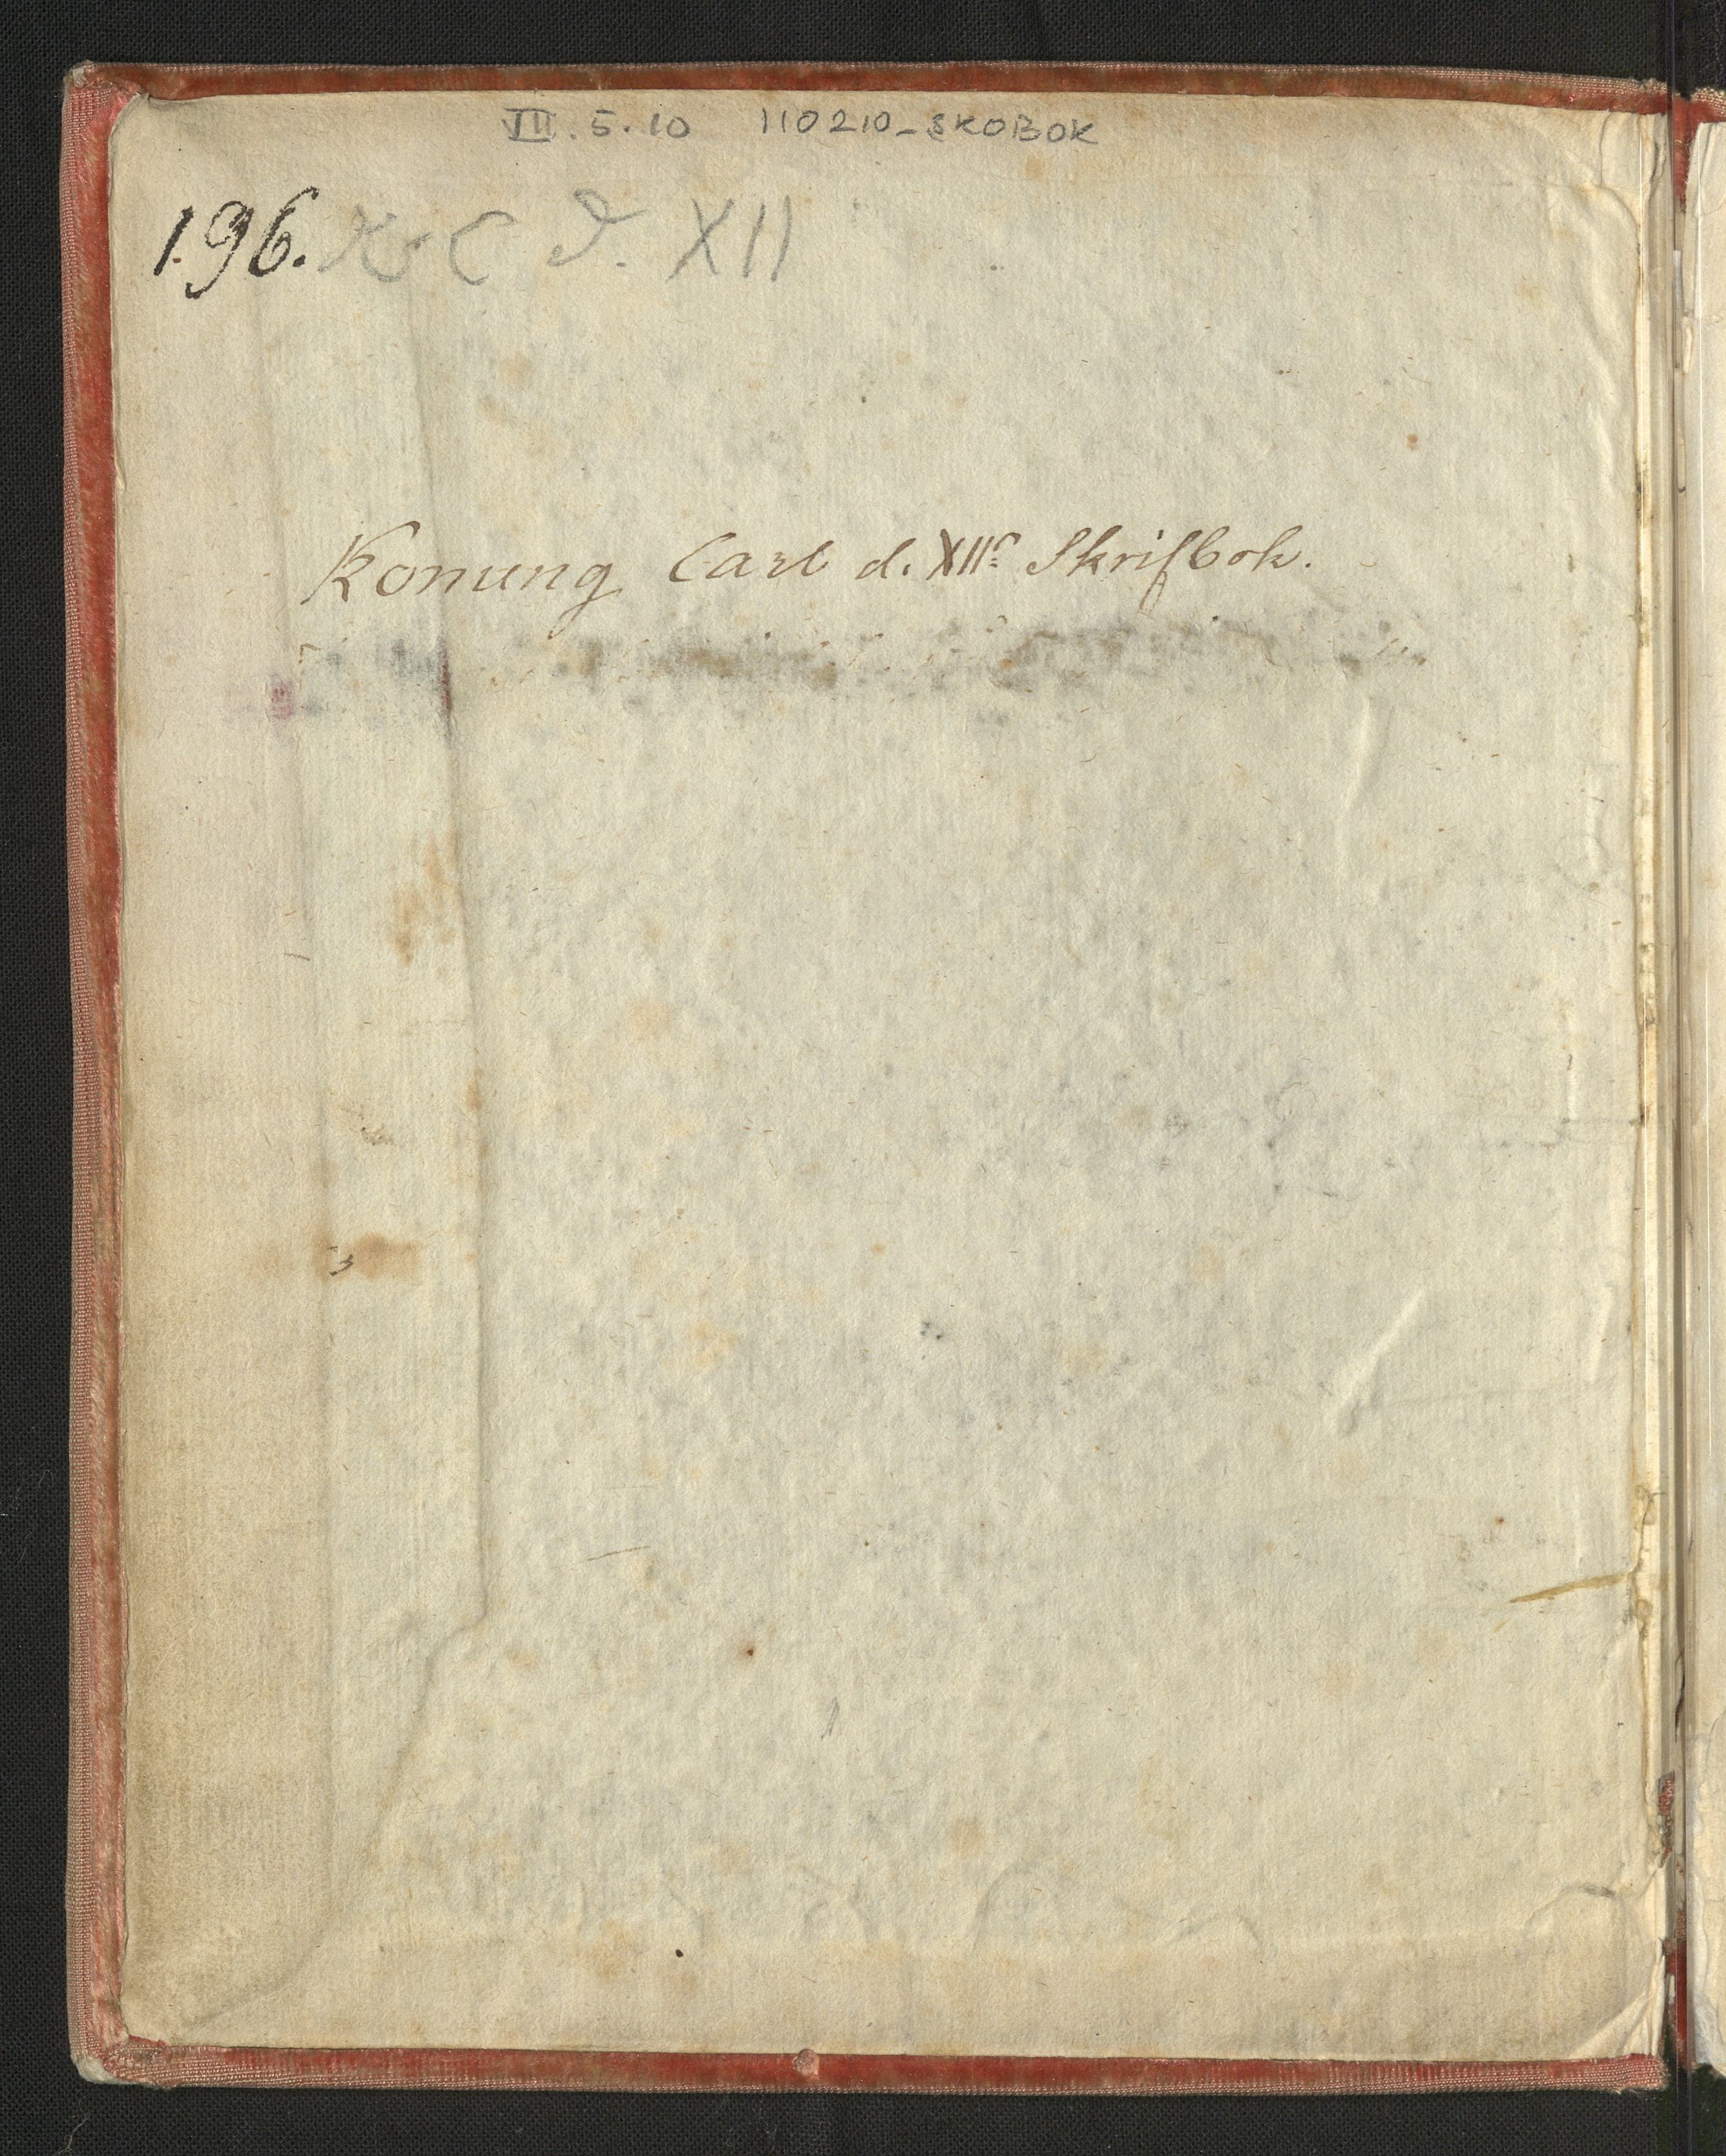 VII.5.10 110210_SKOBOK
196. K. C d. XII
Konung Carl d. XIIs Skrifbok.